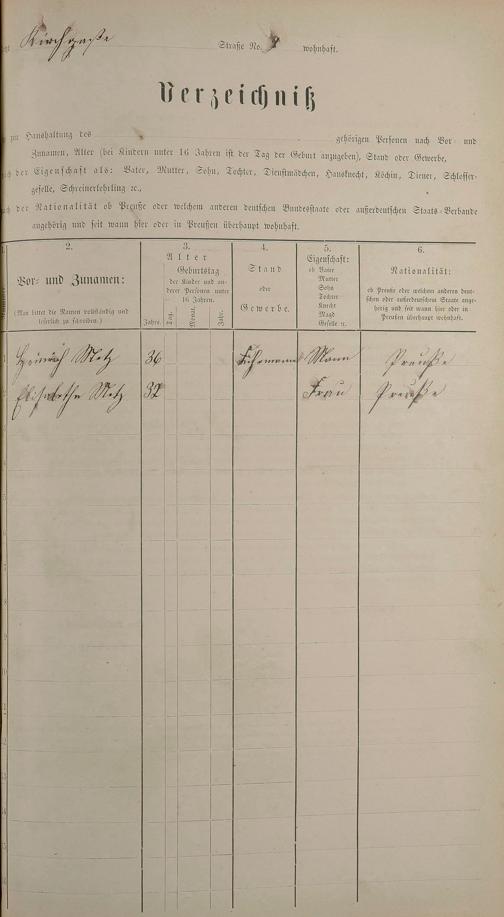 Kirchgasse Straße No. wohnhaft.
Verzeichniß
zur Haushaltung des gehörigen Personen nach Vor- und
Zunamen, Alter (bei Kindern unter 16 Jahren ist der Tag der Geburt anzugeben), Stand oder Gewerbe,
nach der Eigenschaft als: Vater, Mutter, Sohn, Tochter, Dienstmädchen, Hausknecht, Köchin, Diener, Schlosser-
geselle, Schreinerlehrling ꝛc.,
nach der Nationalität ob Preuße oder welchem anderen deutschen Bundesstaate oder außerdeutschen Staats-Verbande
angehörig und seit wann hier oder in Preußen überhaupt wohnhaft.
2.
Vor- und Zunamen:
(Man bittet die Namen vollständig und
leserlich zu schreiben.)
3.
Alter
Geburtstag
der Kinder und an-
derer Personen unter
16 Jahren.
Jahre.
Tag.
Monat.
Jahr.
4.
Stand
oder
Gewerbe.
5.
Eigenschaft:
ob Vater
Mutter
Sohn
Tochter
Knecht
Magd
Geselle ꝛc.
6.
Nationalität:
ob Preuße oder welchem anderen deut-
schen oder außerdeutschen Staate ange-
hörig und seit wann hier oder in
Preußen überhaupt wohnhaft.
Heinrich Metz 36 Fuhrmann Mann Preuße
Elisabetha Metz 32 Frau Preuße